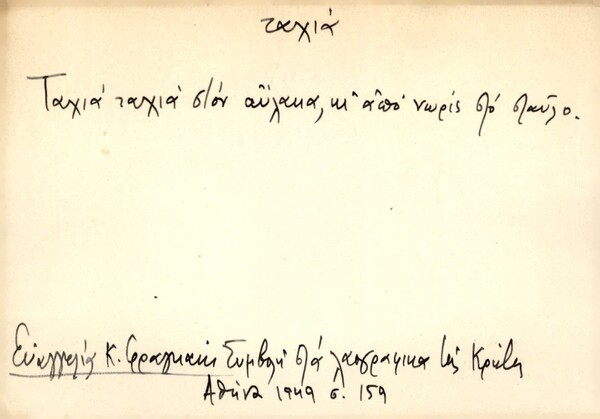 ταχιά
Ταχιά ταχιά στόν αὔλακα, κι' ἀπό νωρίς στό σταῦλο.
Εὐαγγελία Κ. Φραγκάκι Συμβολή στά λαογραφικά τῆς Κρήτης
Ἀθήνα 1949 σ. 159